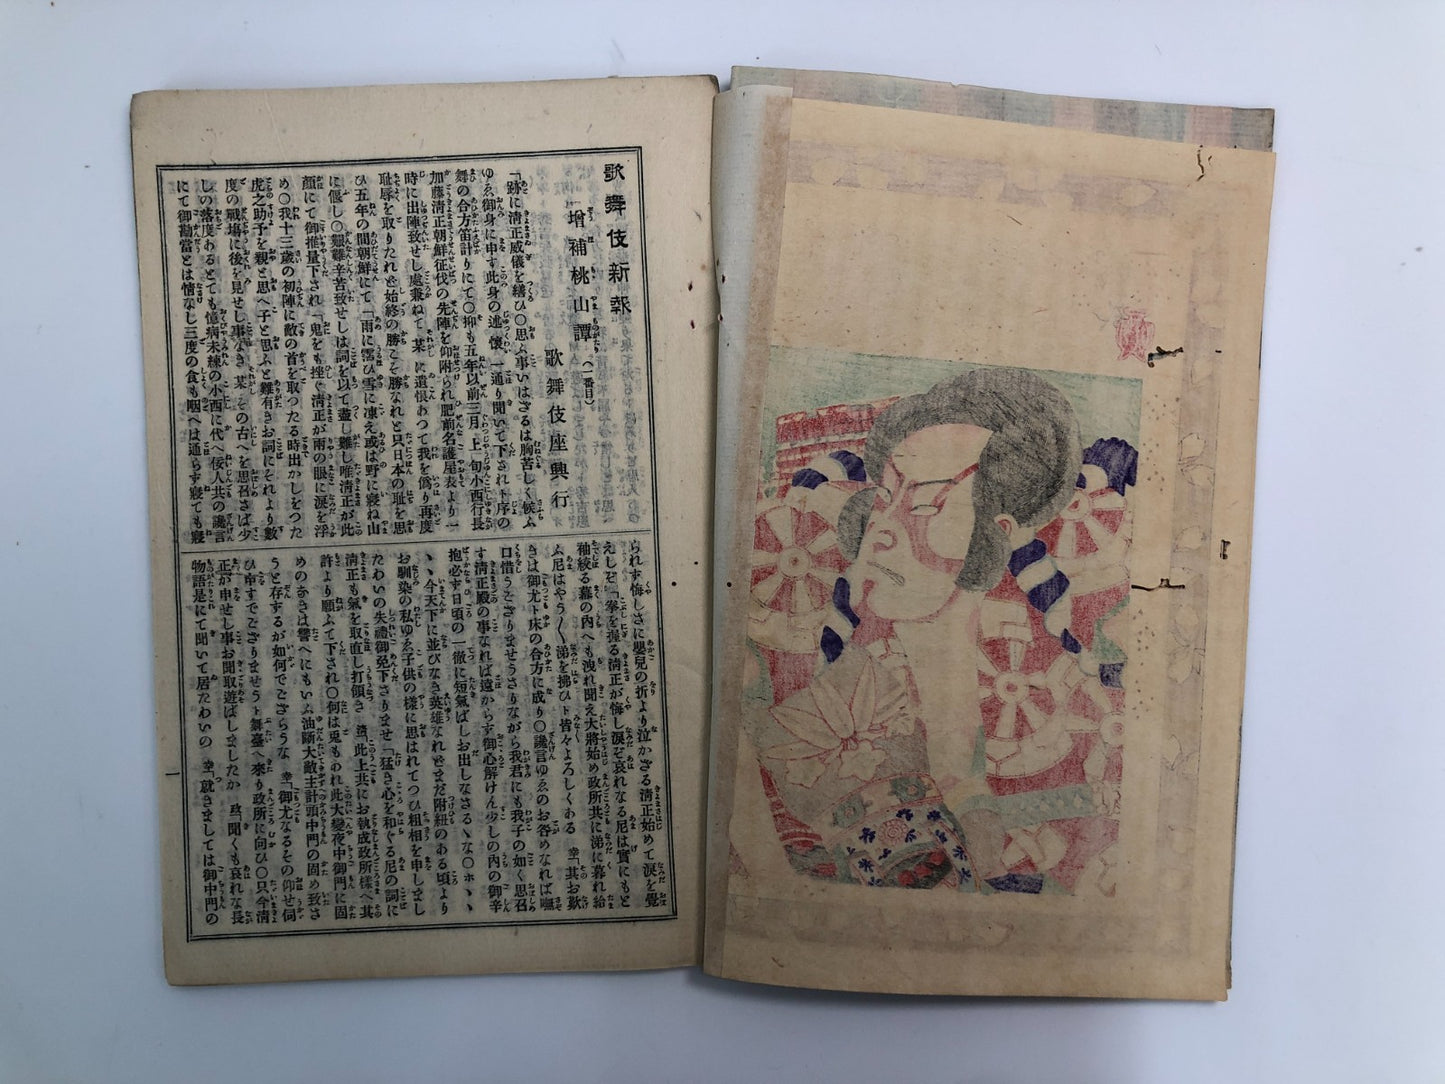 歌舞伎新報
増補桃山譚（二番目）
歌舞伎座興行
「跡に清正威儀を繕ひ〇思ふ事いはざるは胸苦しく候ふ
ゆゑ御身に申す此身の述懐一通り聞いて下されト序の
舞の合方笛計りにて〇抑も五年以前三月上旬小西行長
加藤清正朝鮮征伐の先陣を仰附られ肥前名護屋表より一
時に出陣致せし處兼ねて某に遺恨あつて我を僞り再度
耻辱を取りたれど始終の勝こそ勝なれと只日本の耻を思
ひ五年の間朝鮮にて「雨に濡ひ雪に凍え或は野に寝ね山
に偃し〇艱難辛苦致せしは詞を以て盡し難し唯清正が此
顔にて御推量下され「鬼をも挫ぐ清正が雨の眼に涙を浮
め〇我十三歳の初陣に敵の首を取つたる時出かしをつた
虎之助予を親と思へ子と思ふと難有きお詞にそれより數
度の戰塲に後を見せし事なき某その古へを思召さば少
しの落度あるとても憶病未練の小西に代へ佞人共の讒言
にて御勘當とは情なし三度の食も咽へは通らず寝ても寝
られず悔しさに嬰兒の折より泣かざる清正始めて涙を覺
えしぞ「拳を握る清正が悔し涙ぞ哀れなる尼は實にもと
袖絞る幕の内へも洩れ聞え大將始め政所共に涕に暮れ給
ふ尼はやう〱涕を拂ひト皆々よろしくある 幸「其お歎
きは御尤ト床の合方に成り〇讒言ゆゑのお咎めなれば嘸
口惜うござりませうさりながら我君にも我子の如く思召
す清正殿の事なれば遠からず御心解けん少しの内の御辛
抱必ず日頃の一徹に短氣ばしお出しなさるゝな〇ホヽヽ
ヽヽ今天下に並びなき英雄なれどまだ附紐のある頃より
お馴染の私ゆゑ子供の樣に思はれてつひ粗相を申しまし
たわいの失禮御免下さりませ「猛き心を和ぐる尼の詞に
清正も氣を取直し打領き 清「此上共にお執成政所樣へ其
許より願ふて下され〇何は兎もあれ此大變夜中御門に固
めのなきは譬へにもいふ油斷大敵主計頭中門の固め致さ
うと存するが如何でござらうな 幸「御尤なるその仰せ伺
ひ申すでござりませうト舞臺へ來り政所に向ひ〇只今清
正が申せし事お聞取遊ばしましたか 政「聞くも哀れな長
物語是にて聞いて居たわいの 幸「就きましては御中門の
一